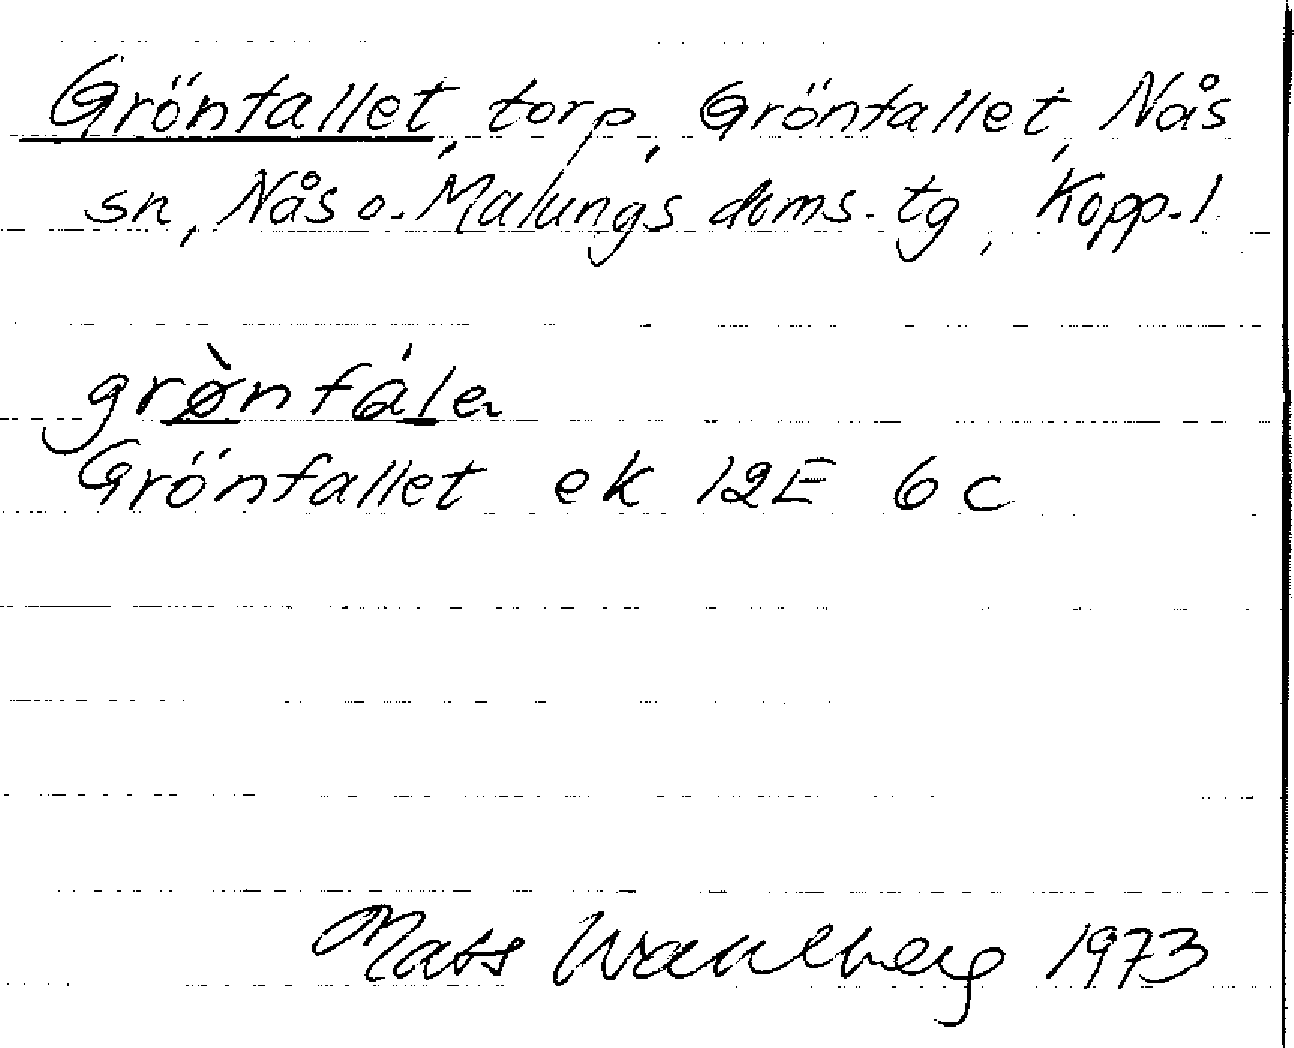 Grönfallet, torp, Grönfallet, Nås
sn, Nås o. Malungs doms. tg, Kopp. l
grø̀nfálen
Grönfallet ek 12E 6c
Mats Wahlberg 1973